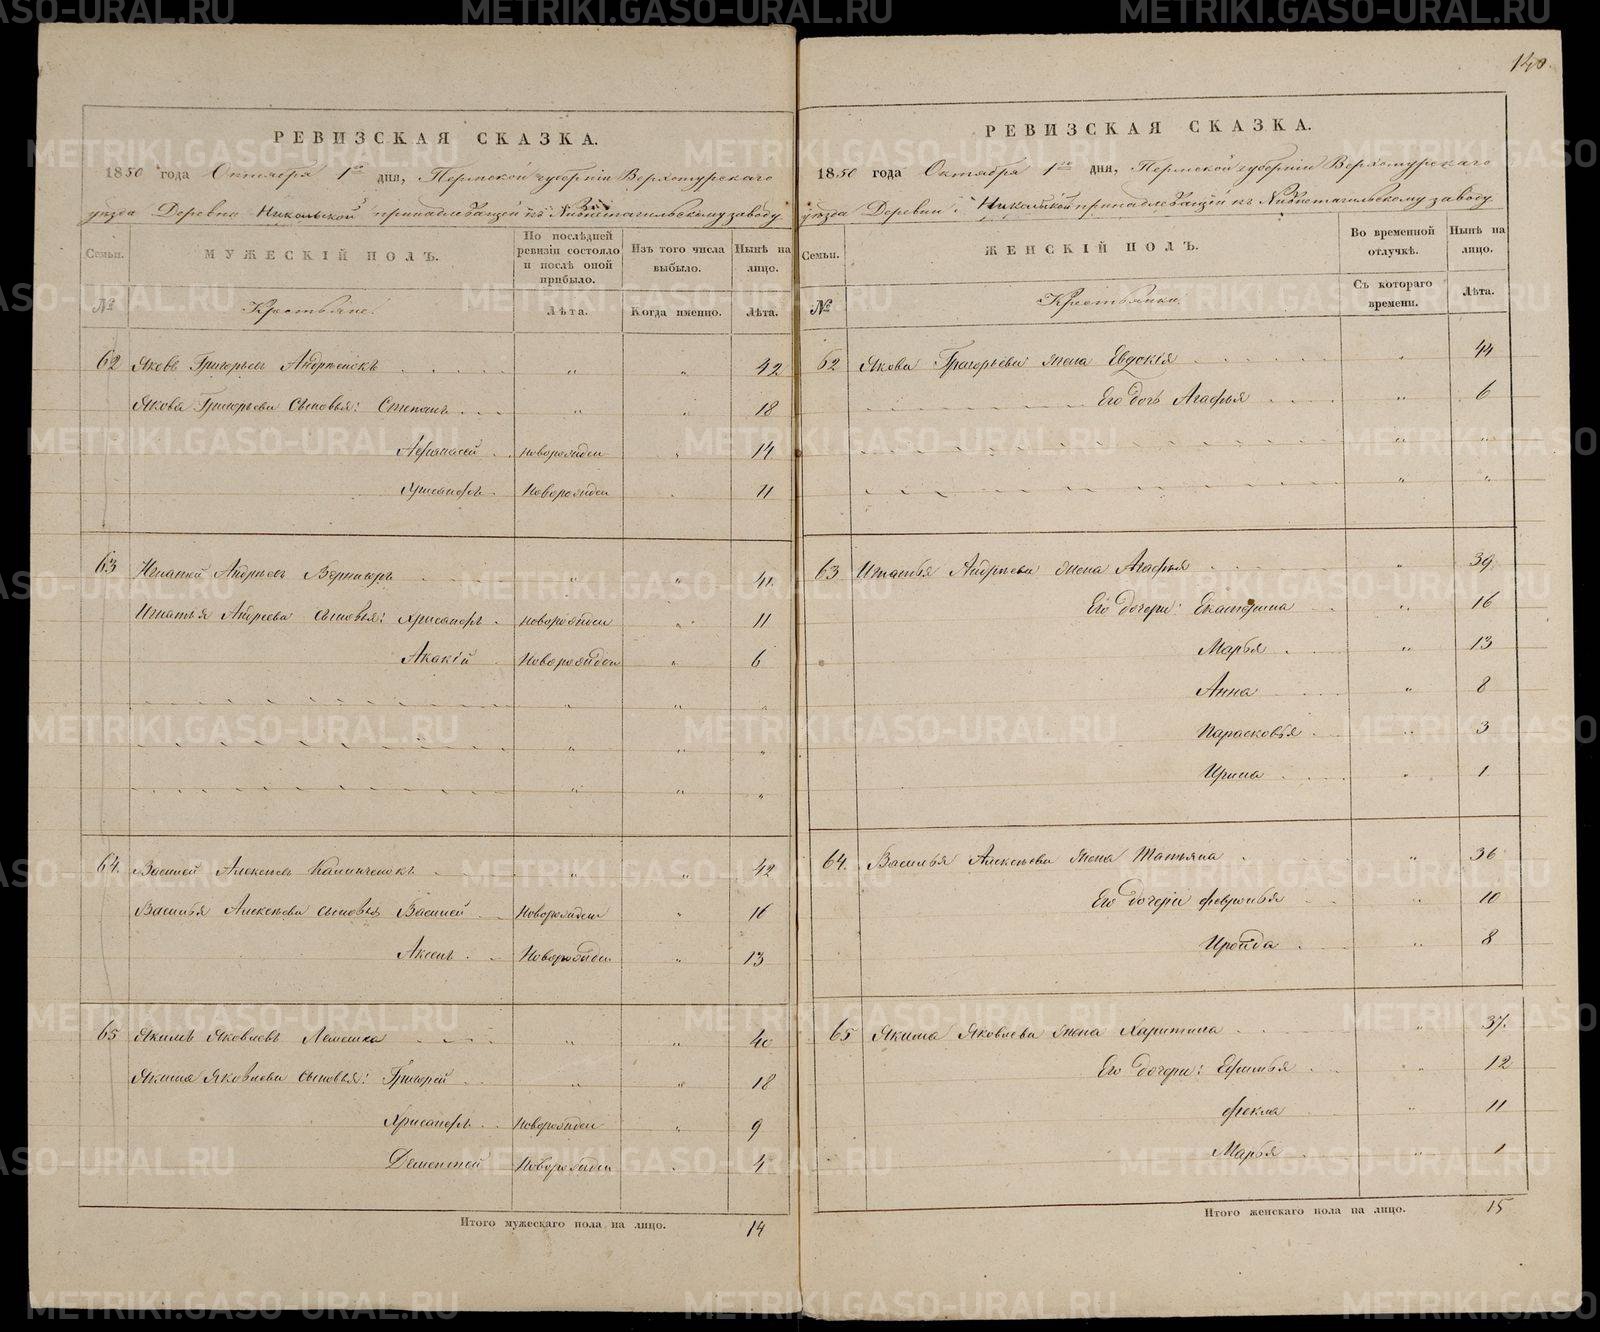 140.
РЕВИЗСКАЯ СКАЗКА.
1850 года Октября 1го дня, Пермской губернiи Верхотурскаго
уѣзда Деревни Никольской принадлежащей къ Нижнетагильскому заводу
Семьи.
МУЖЕСКIЙ ПОЛЪ.
По послѣдней ревизiи состояло и послѣ оной прибыло.
Изъ того числа выбыло.
Нынѣ на лицо.
№
Крестьяне.
Лѣта.
Когда именно.
Лѣта.
62 Яковъ Григорьевъ 42
Якова Григорьева Сыновья: Степанъ 18
Афанасей Новорожден 14
Хрисанфъ Новорожден 11
63 Игнатей Андреевъ 41
Игнатья Андреева Сыновья: Хрисанфъ новорожден 11
Акакiй Новорожден 6
64. Василей Алексѣевъ 42
Василья Алексѣева сыновья Василей Новорожден 16
Аксенъ Новорожден 13
65 Якимъ Яковлевъ Лемешка 40
Якима Яковлева Сыновья: Григорей 18
Хрисанфъ Новорожден 9
Дементей Новорожден 4
Итого мужескаго пола на лицо. 14
РЕВИЗСКАЯ СКАЗКА.
1850 года Октября 1го дня, Пермской губернiи Верхотурскаго
уѣзда Деревни Никольской принадлежащей къ Нижнетагильскому заводу.
Семьи.
ЖЕНСКIЙ ПОЛЪ.
Во временной отлучкѣ.
Нынѣ на лицо.
№
Крестьянки.
Съ котораго времени.
Лѣта.
62 Якова Григорьева жена Евдокiя 44
Его дочь Агафья 6
63 Игнатья Андреева жена Агафья 39
Его дочери: Екатерина 16
Марья 13
Анна 8
Парасковья 3
Ирина 1
64. Василья Алексѣева жена Татьяна 36
Его дочери Февронья 10
Ироида 8
65 Якима Яковлева жена Харитина 37.
Его дочери: Ефимья 12
Фекла 11
Марья 1
Итого женскаго пола на лицо. 15
METRIKI.GASO-URAL.RU